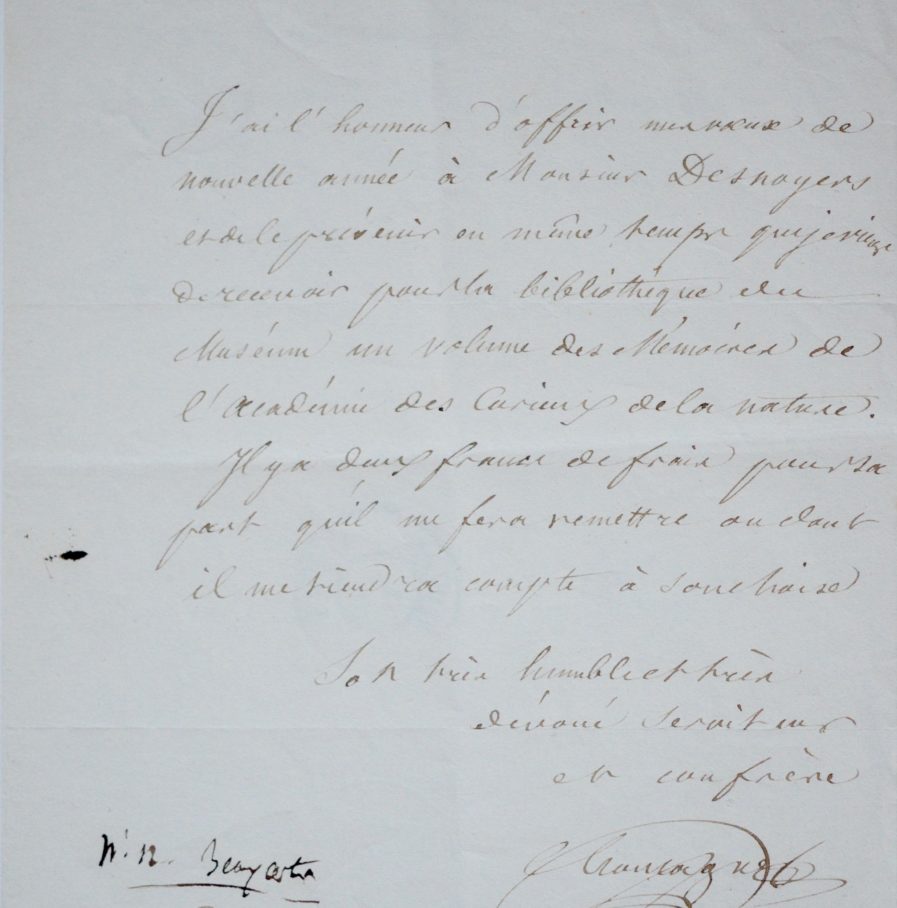 J'ai l'honneur d'offrir mes vœux de
nouvelle année à Monsieur Desnoyers
et de le prévenir en même temps que je viens
de recevoir pour la bibliothèque du
Muséum un volume des Mémoires de
l'Académie des Curieux de la nature.
Il y a deux francs de frais pour sa
part qu'il me fera remettre ou dont
il me tiendra compte à son choix
Son très humble et très
dévoué serviteur
et confrère